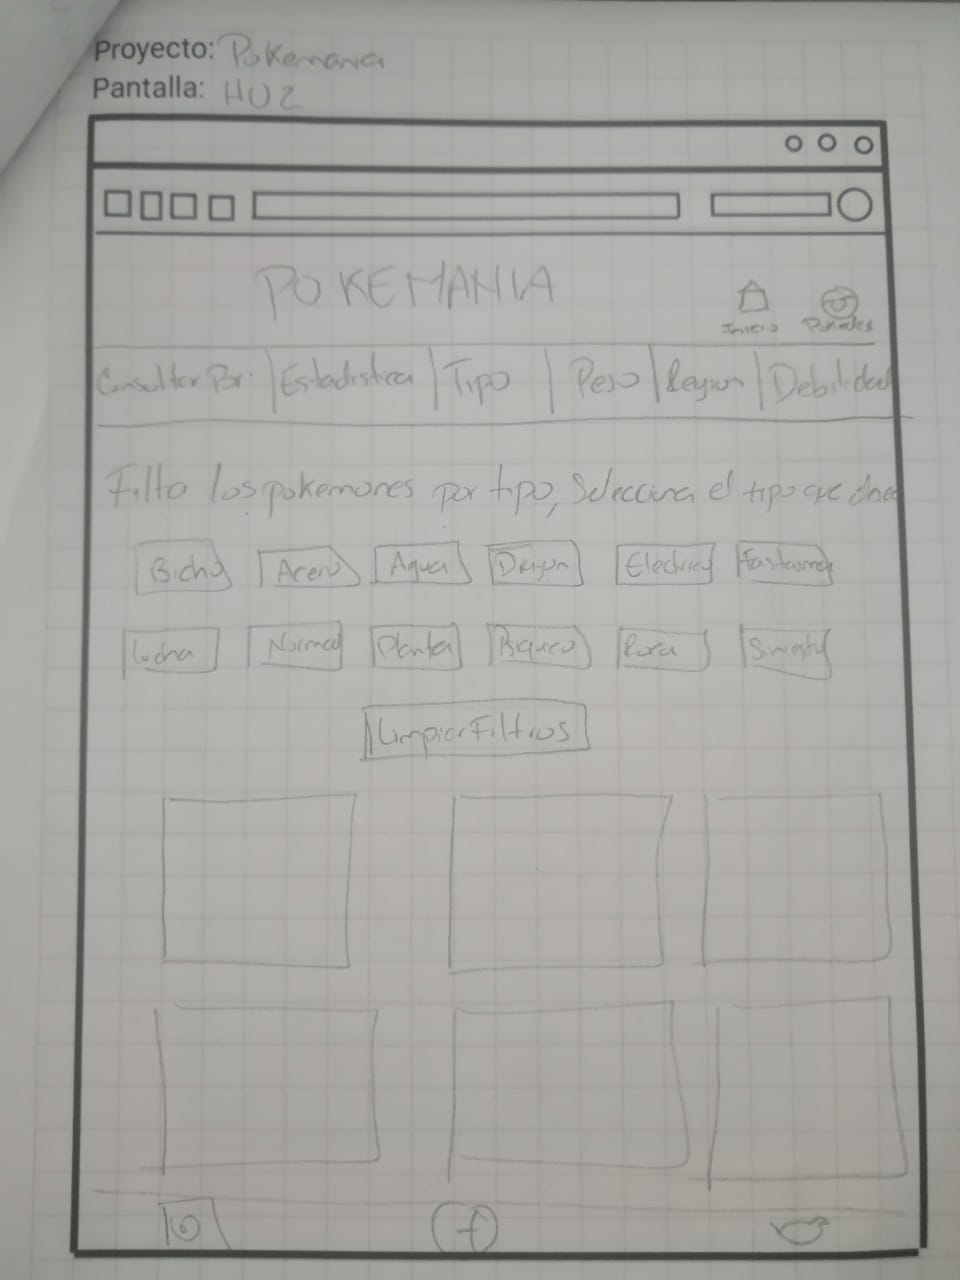 Proyecto: Pokemania
Pantalla: HU2
POKEMANIA
Inicio Pokedex
Consultar Por: Estadistica Tipo Peso Region Debilidad
Filto los pokemones por tipo, Selecciona el tipo que
Bicho Acero Agua Dragon Electrico
Lucha Normal Planta Roca
Limpiar Filtros
f